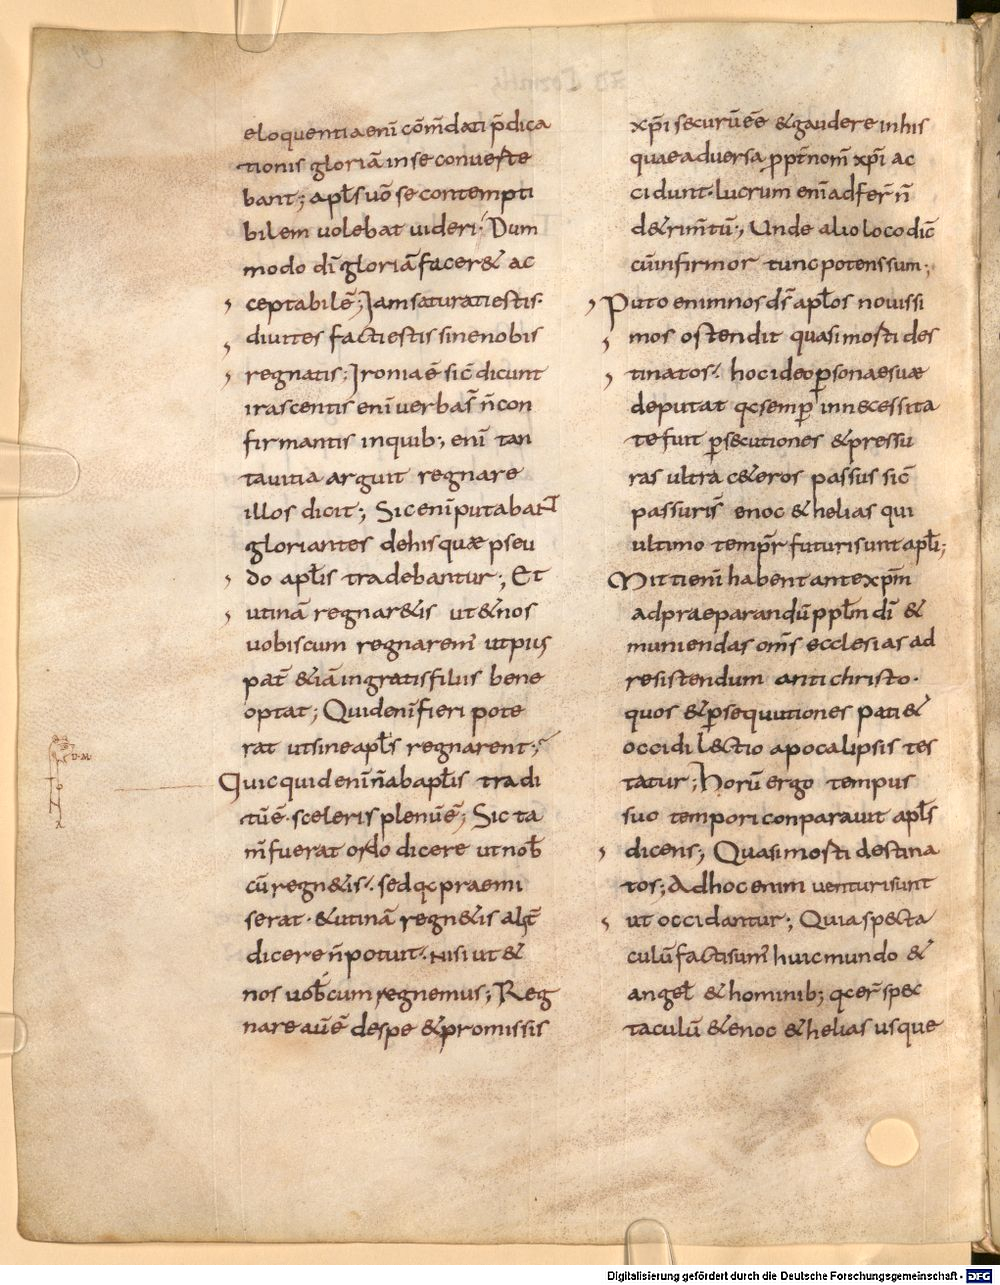 eloquentia enī cōm̄dati p̄dica
tionis gloriā in se converte
bant; apl̄s vō se contempti
bilem volebat videri. Dum
modo dī gloriā facer& ac
ceptabilē; Iam saturati estis.
divites facti estis sine nobis
regnatis; Ironia ē sic̄ dicunt
irascentis enī verba s̄ n̄ con
firmantis in quib; enī tan
ta vitia arguit regnare
illos dicit; Sic enī putabant
gloriantes de his quæ pseu
do apl̄is tradebantur; Et
utinā regnar&is ut & nos
vobiscum regnarem̄ ut pius
pat̄ & iā ingratis filiis bene
optat; Quid enī fieri pote
rat ut sine apl̄s regnarent;
Quicquid enī n̄ ab apl̄is tradi
tū ē. sceleris plenū ē; Sic ta
m̄ fuerat ordo dicere ut nob̄
cū regn&is. sed qc praemi
serat. & utinā regn&is alit̄
dicere n̄ potuit. nisi ut &
nos vob̄cum regnemus; Reg
nare aūē de spe & promissis
xp̄i securū eē & gaudere in his
quae adversa ppt̄ nom̄ xp̄i ac
cidunt. lucrum enī adfer̄ n̄
d&rim̄tū; Unde alio loco dic̄
cū infirmor tunc potens sum;
Puto enim nos ds̄ apl̄os novissi
mos ostendit quasi morti des
tinatos. hoc ideo ꝑsonae suæ
deputat qc semp̄ in necessita
te fuit ꝑsecutiones & pressu
ras ultra c&eros passus sic̄
passuri s̄ enoc & helias qui
ultimo tempr̄ futuri sunt apl̄i;
Mitti enī habent ante xp̄m
ad praeparandū ppl̄m dī &
muniendas om̄s ecclesias ad
resistendum antichristo.
quos & ꝑsequutiones pati &
occidi lectio apocalipsis tes
tatur; Horū ergo tempus
suo tempori conparavit apl̄s
dicens; Quasi morti destina
tos; Ad hoc enim venturi sunt
ut occidantur; Quia specta
culū facti sum̄ huic mundo &
angel̄ & hominib; qc er̄ spec
taculū & enoc & helias usque
Digitalisierung gefördert durch die Deutsche Forschungsgemeinschaft - DFG